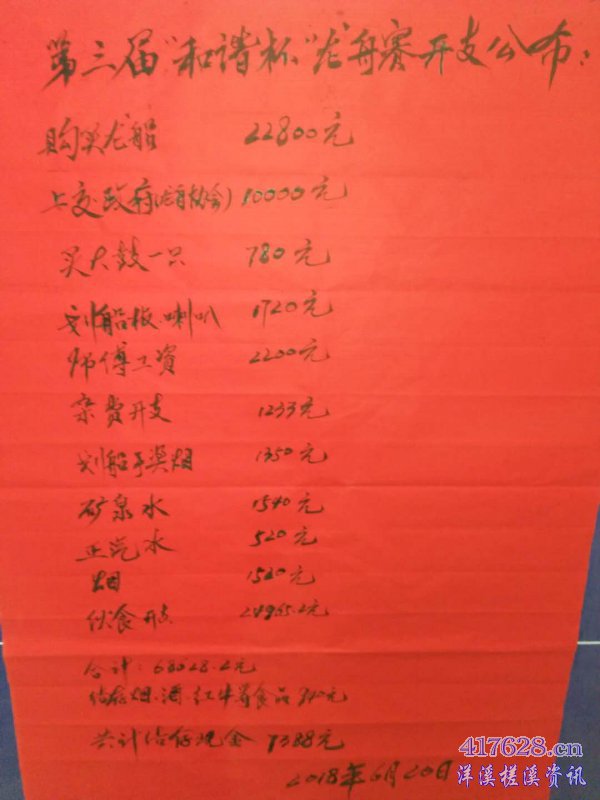 第三届"和谐杯"龙舟赛开支公布:
购买龙船 22800元
上交政府(龙舟协会) 10000元
买大鼓一只 780元
划船板.喇叭 1720元
师傅工资 2200元
杂费开支 1233元
划船手奖烟 1350元
矿泉水 1540元
正汽水 520元
烟 1520元
伙食开支 24965.2元
合计: 68628.2元
结存烟.酒.红牛等食品 元
共计结存现金 7388元
2018年6月20日
417628.cn
洋溪槎溪资讯